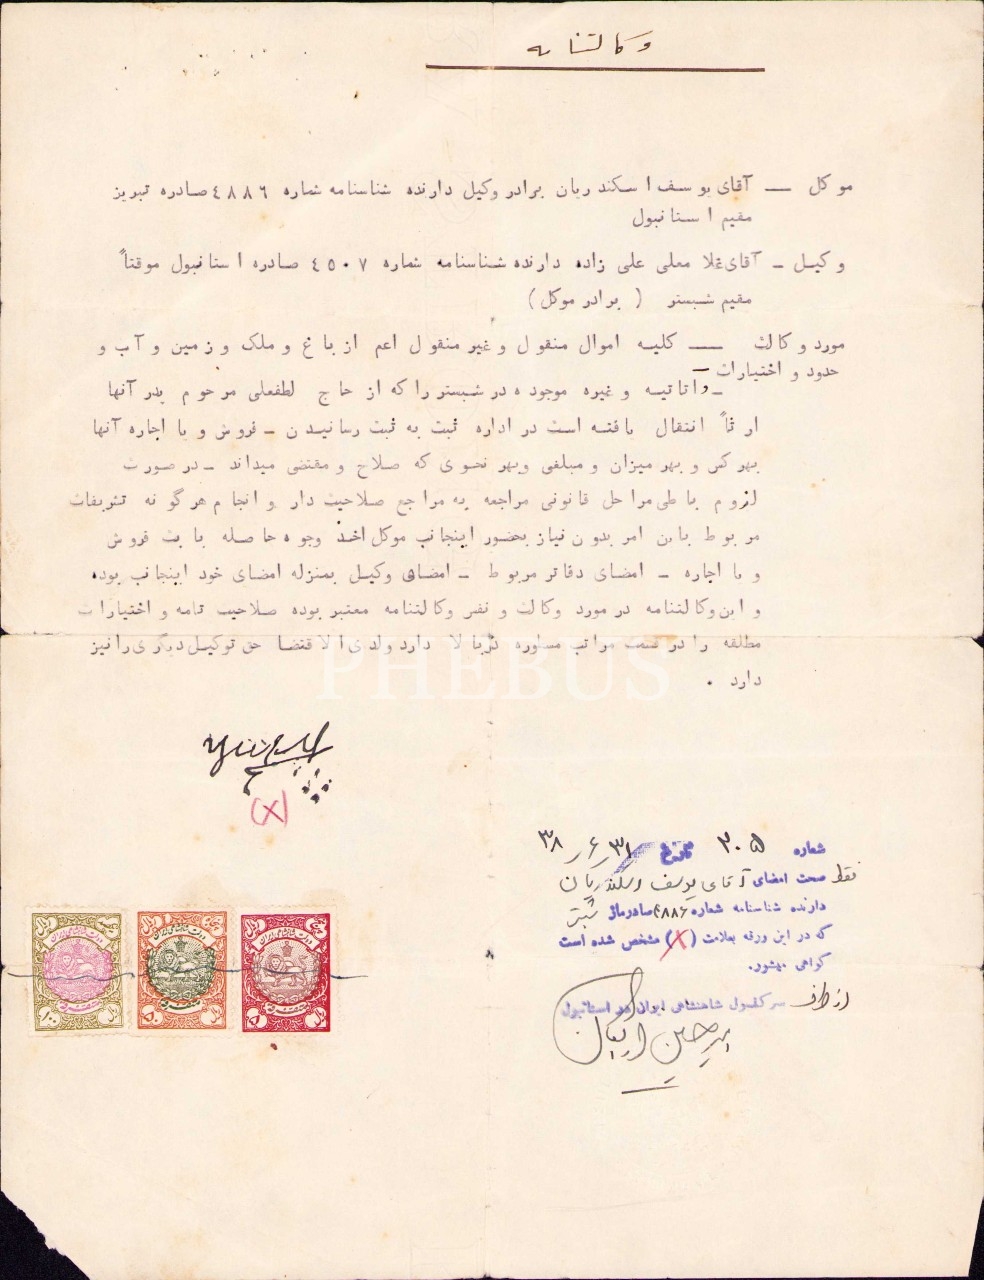 وکالتنامه
موکل — آقای یوسف اسکندریان برادر وکیل دارنده شناسنامه شماره ٤٨٨٦ صادره تبریز
مقیم استانبول
وکیل - آقای معلی علی زاده دارنده شناسنامه شماره ٤٥٠٧ صادره استانبول موقتاً
مقیم شبستر ( برادر موکل )
مورد وکالت — کلیه اموال منقول و غیر منقول اعم از باغ و ملک و زمین و آب و
حدود و اختیارات -
- واثاثیه و غیره موجوده در شبستر را که از حاج لطفعلی مرحوم پدر آنها
ارثاً انتقال یافته است در اداره ثبت به ثبت رسانیدن - فروش و یا اجاره آنها
بهر کس و بهر میزان و مبلغی وبهر نحوی که صلاح و مقتضی میداند - در صورت
لزوم با طی مراحل قانونی مراجعه به مراجع صلاحیت دار و انجام هر گونه تشریفات
مربوط باین امر بدون نیاز بحضور اینجانب موکل اخذ وجوه حاصله بابت فروش
و یا اجاره - امضای دفاتر مربوط - امضای وکیل بمنزله امضای خود اینجانب بوده
و این وکالتنامه در مورد وکالت و نفس وکالتنامه معتبر بوده صلاحیت تامه و اختیارات
مطلقه را در مراتب مسطوره دربالا دارد ولدی الاقتضا حق توکیل دیگری را نیز
دارد .
PHEBUS
(X)
شماره ٣٠٥ تاریخ ٣١/٦/٣٨
فقط صحت امضای آقای یوسف اسکندریان
دارنده شناسنامه شماره ٤٨٨٦ صادره از
که در این ورقه بعلامت (X) مشخص شده است
گواهی میشود.
از طرف سرکنسول شاهنشاهی ایران در استانبول
دولت شاهنشاهی ایران
١٠٠ ریال
دولت شاهنشاهی ایران
٥٠ ریال
دولت شاهنشاهی ایران
٥ ریال